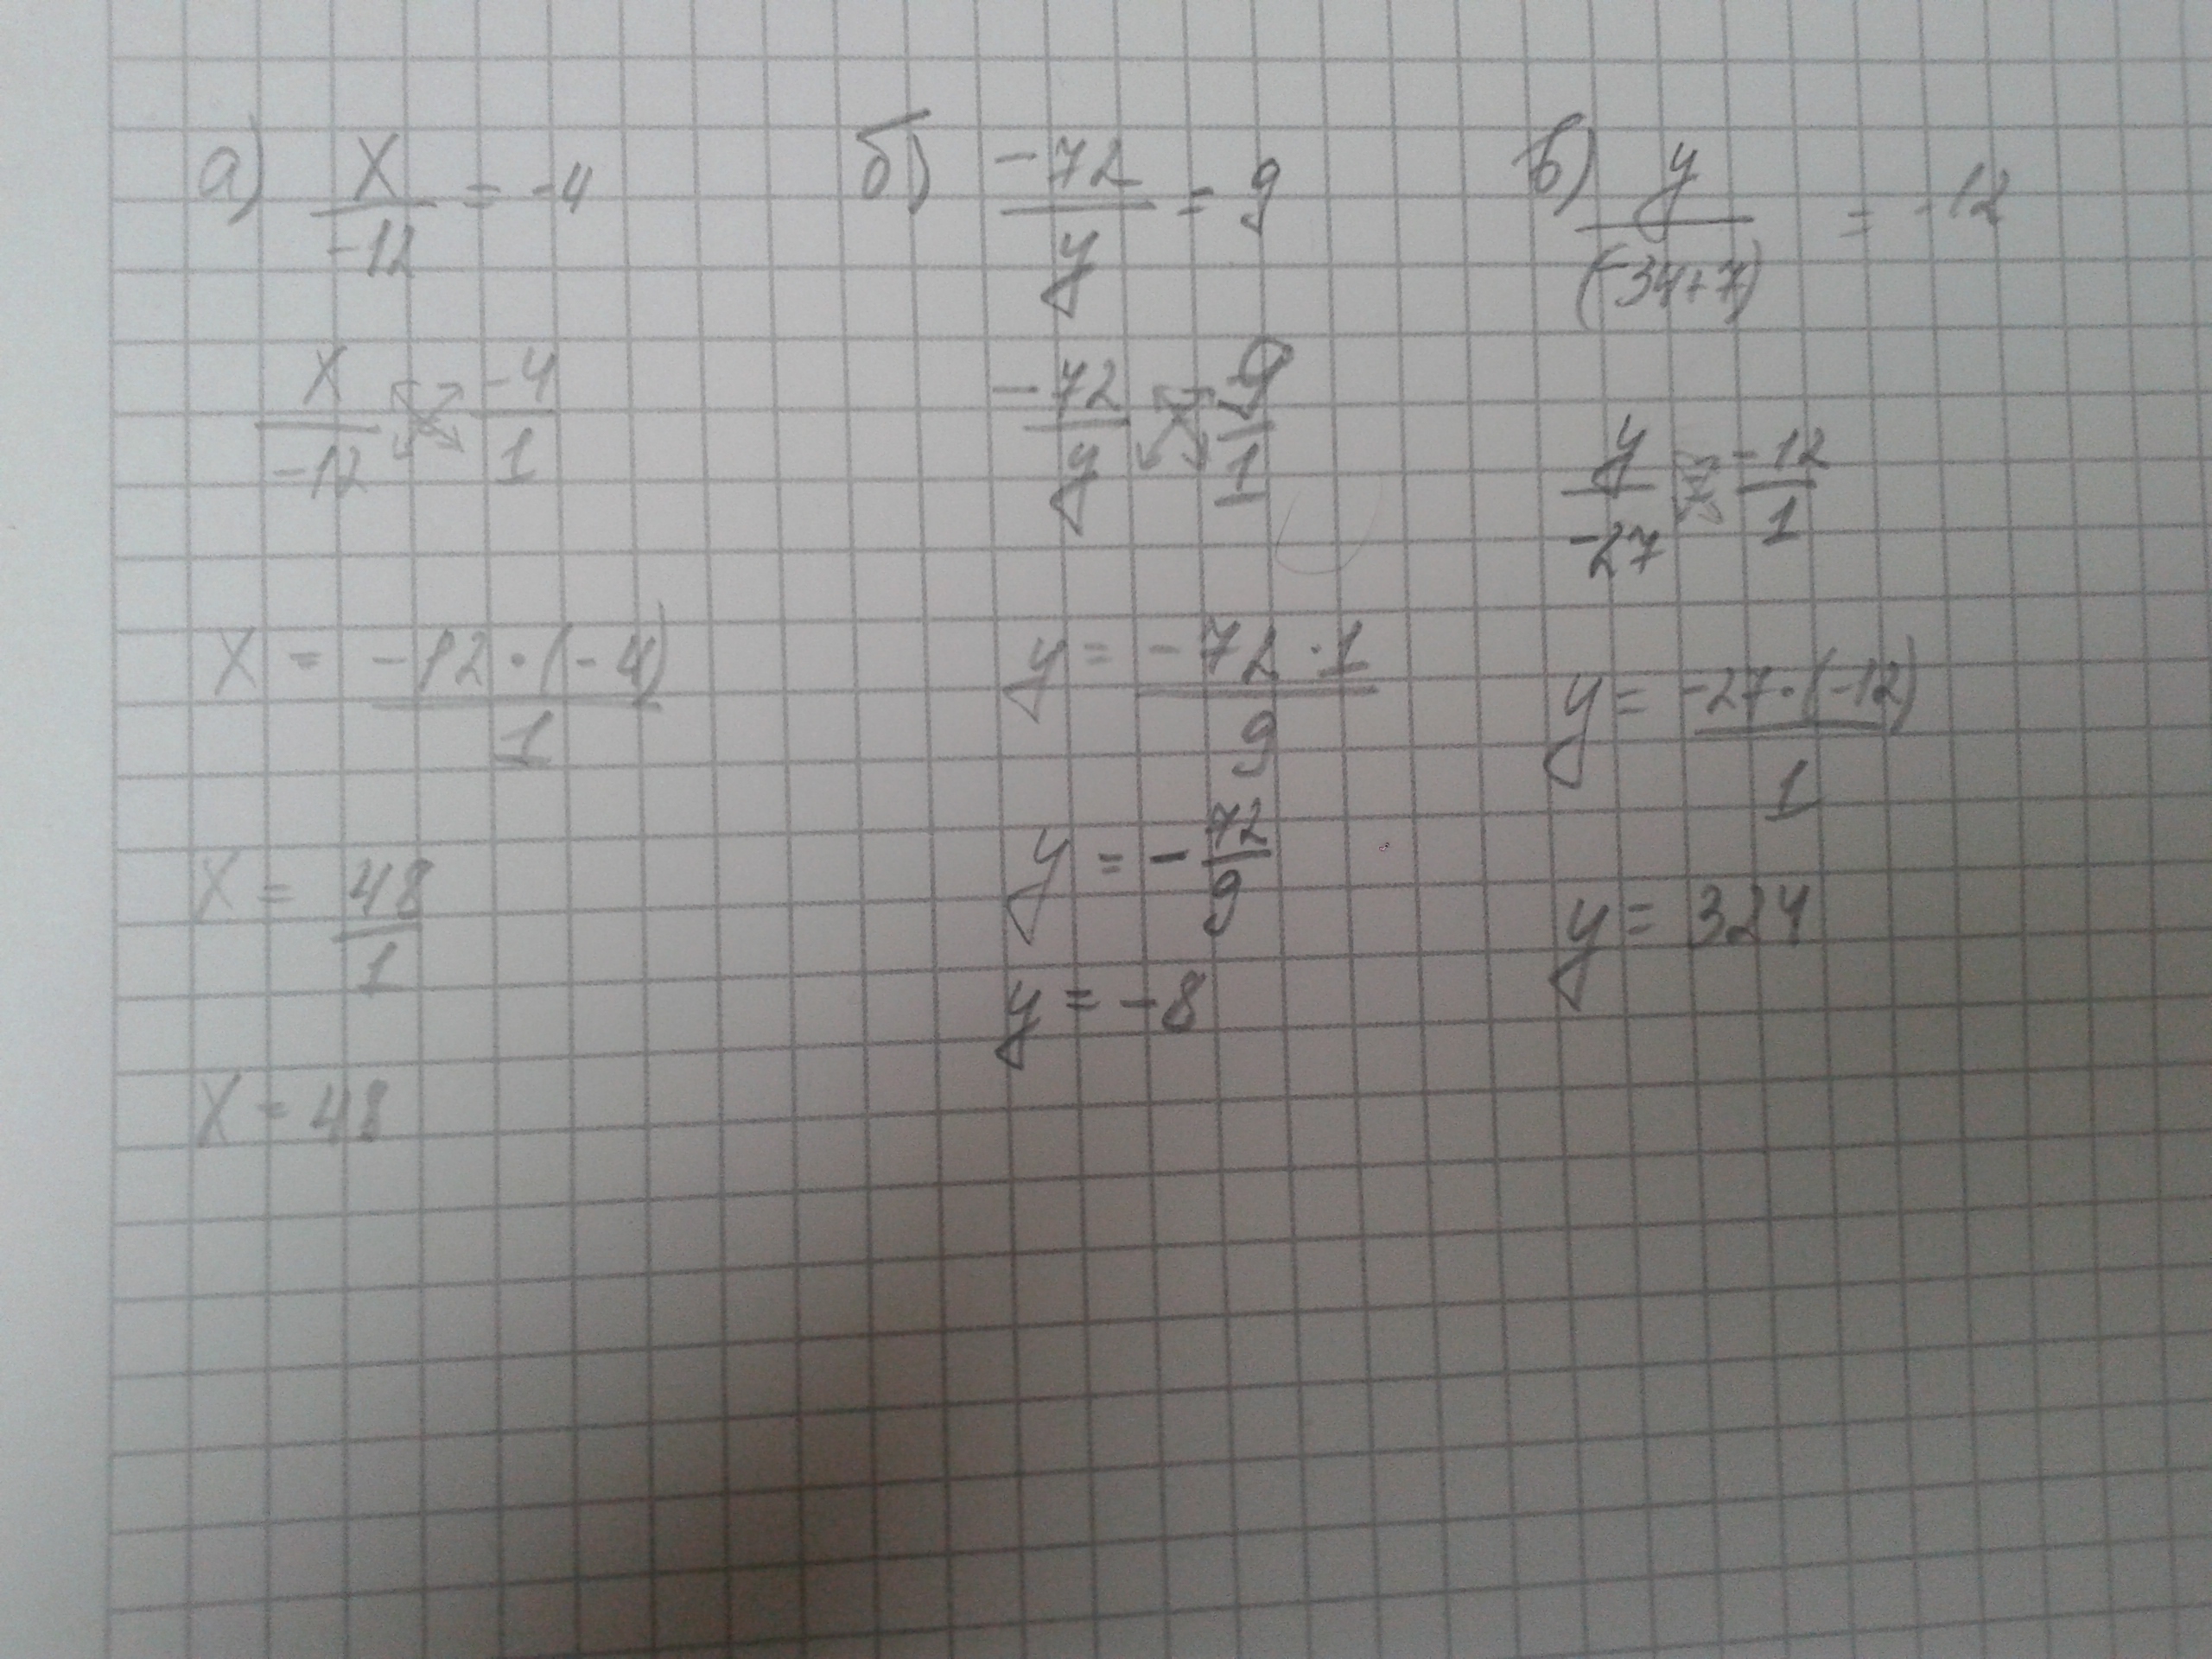 а) x/-12 = -4
x/-12 -4/1
x = -12·(-4)/1
x = 48/1
x = 48
б) -72/y = 9
-72/y 9/1
y = -72·1/9
y = -72/9
y = -8
в) y/(-34+7) = -12
y/-27 -12/1
y = -27·(-12)/1
y = 324